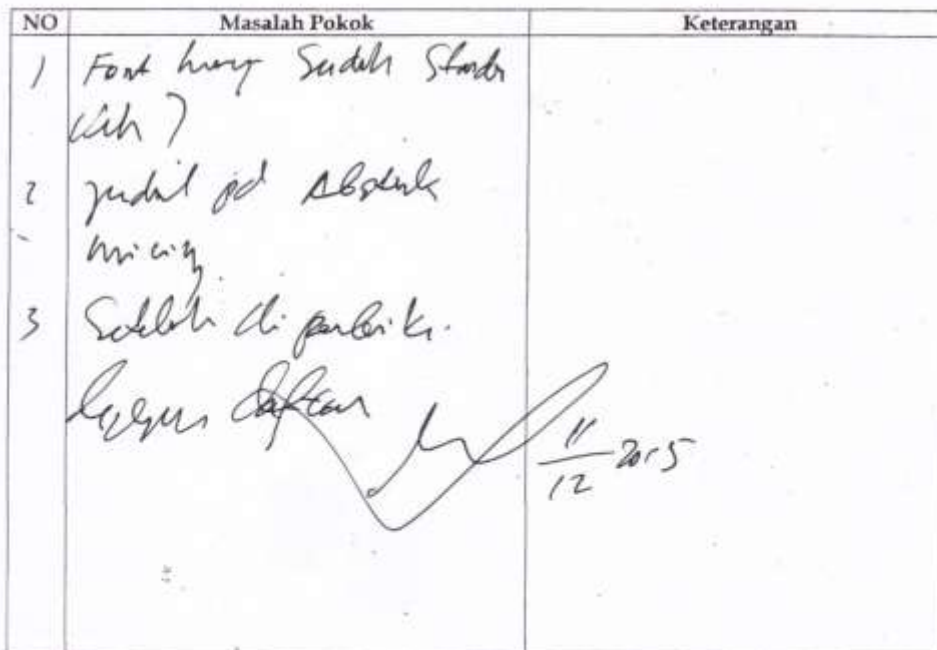 NO Masalah Pokok Keterangan
1 Font Sudah
?
2 judul pd Abstrak
miring
3 Setelah di perbaiki.
daftar
11/12 2015